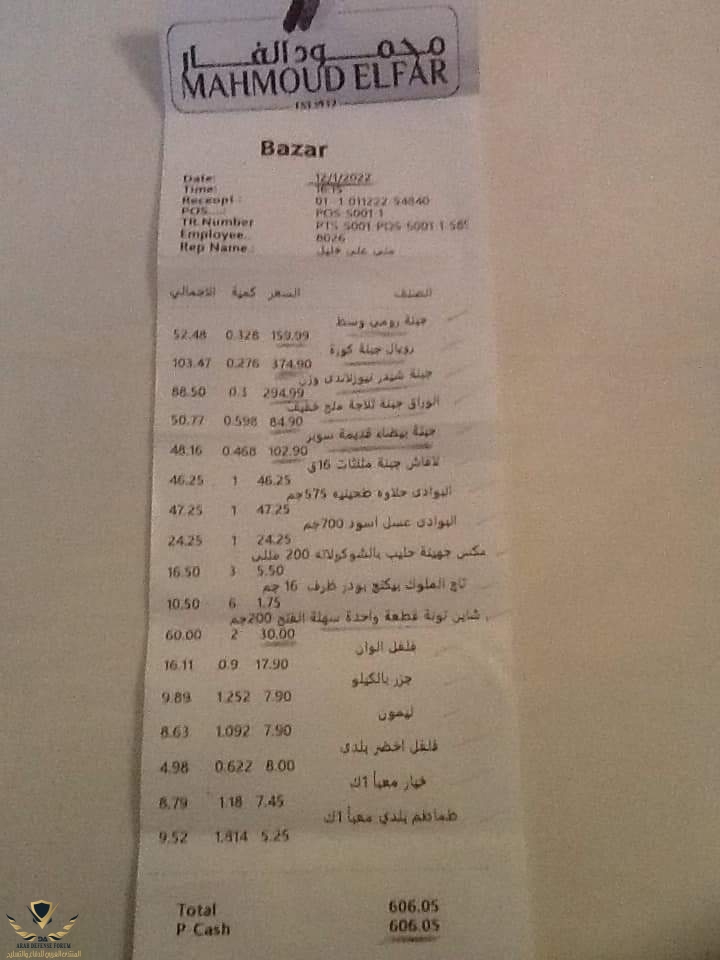 محمود الفار
MAHMOUD ELFAR
Bazar
Date: 12/1/2022
Time: 16:15
Receopt : 01 1 011222 54840
POS....: POS S001 1
TR.Number PTS S001 POS S001 1 585
Employee.. 8026
Rep Name.: منى على خليل
الصنف السعر كمية الاجمالي
جبنة رومى وسط
52.48 0.328 159.99
رويال جبنة كورة
103.47 0.276 374.90
جبنة شيدر نيوزلاندى وزن
88.50 0.3 294.99
الوراق جبنة ثلاجة ملح خفيف
50.77 0.598 84.90
جبنة بيضاء قديمة سوبر
48.16 0.468 102.90
لافاش جبنة مثلثات 16ق
46.25 1 46.25
البوادى حلاوه طحينيه 575جم
47.25 1 47.25
البوادى عسل اسود 700جم
24.25 1 24.25
مكس جهينة حليب بالشوكولاته 200 مللى
16.50 3 5.50
تاج الملوك بيكنج بودر ظرف 16 جم
10.50 6 1.75
شاين تونة قطعة واحدة سهلة الفتح 200جم
60.00 2 30.00
فلفل الوان
16.11 0.9 17.90
جزر بالكيلو
9.89 1.252 7.90
ليمون
8.63 1.092 7.90
فلفل اخضر بلدى
4.98 0.622 8.00
خيار معبأ 1ك
8.79 1.18 7.45
طماطم بلدي معبأ 1ك
9.52 1.814 5.25
Total 606.05
P Cash 606.05
ARAB DEFENSE FORUM
المنتدى العربي للدفاع والتسليح